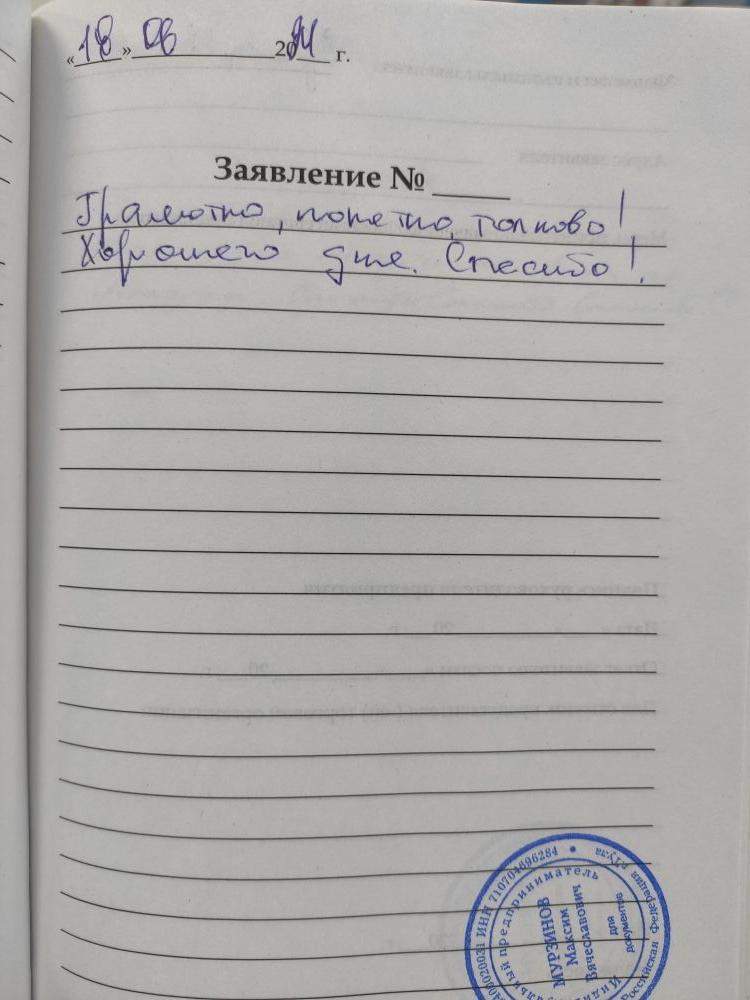 «18» 06 2024 г.
Заявление №
Грамотно, понятно, толково!
Хорошего дня. Спасибо!
ИНН 710704696284
г.Тула
Российская Федерация
Индивидуальный предприниматель
МУРЗИНОВ
Максим
Вячеславович
для
документов